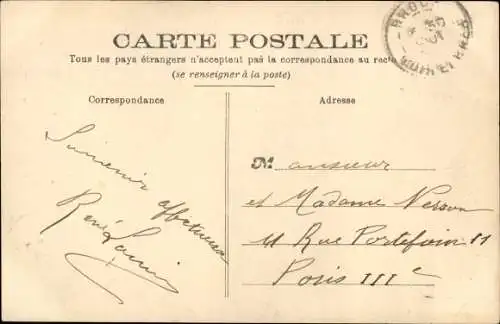 CARTE POSTALE
Tous les pays étrangers n'acceptent pas la correspondance au recto
(se renseigner à la poste)
Correspondance
Adresse
Souvenir
affectueux
René
Monsieur
et Madame Nerson
11 Rue Portefoin 11
Paris IIIe